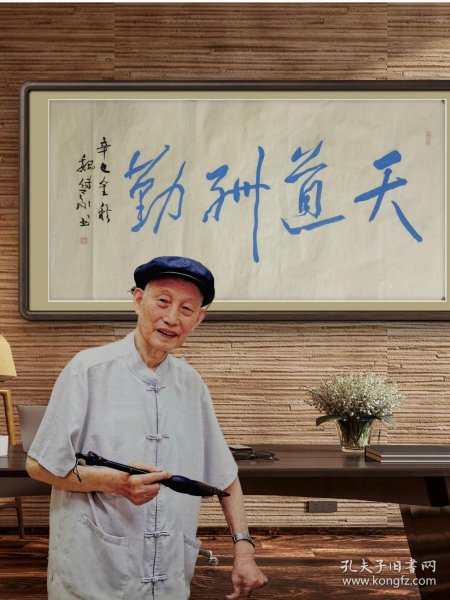 天道酬勤
辛巳金秋
魏传书
孔夫子旧书网
www.kongfz.com